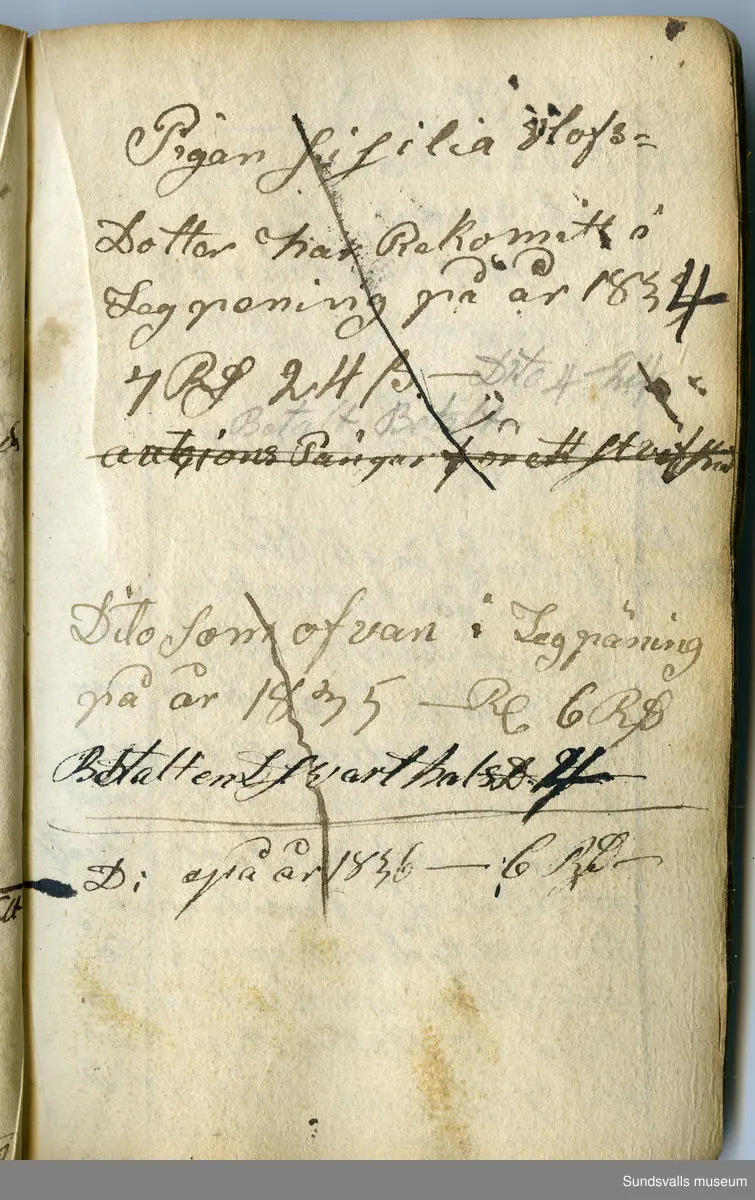 Pigan Sisilia Olofs=
Dotter har Rekomitt i
Legpening på år 1834
7 Rd 24 ß. — Dito 4
Betalt Betalt
auktions Pängar för ett
Dito som ofvan i Legpäning
på år 1835 — 6 Rd
Betalt en Svart hals D.
D: på år 1836 — 6 Rd —
Sundsvalls museum